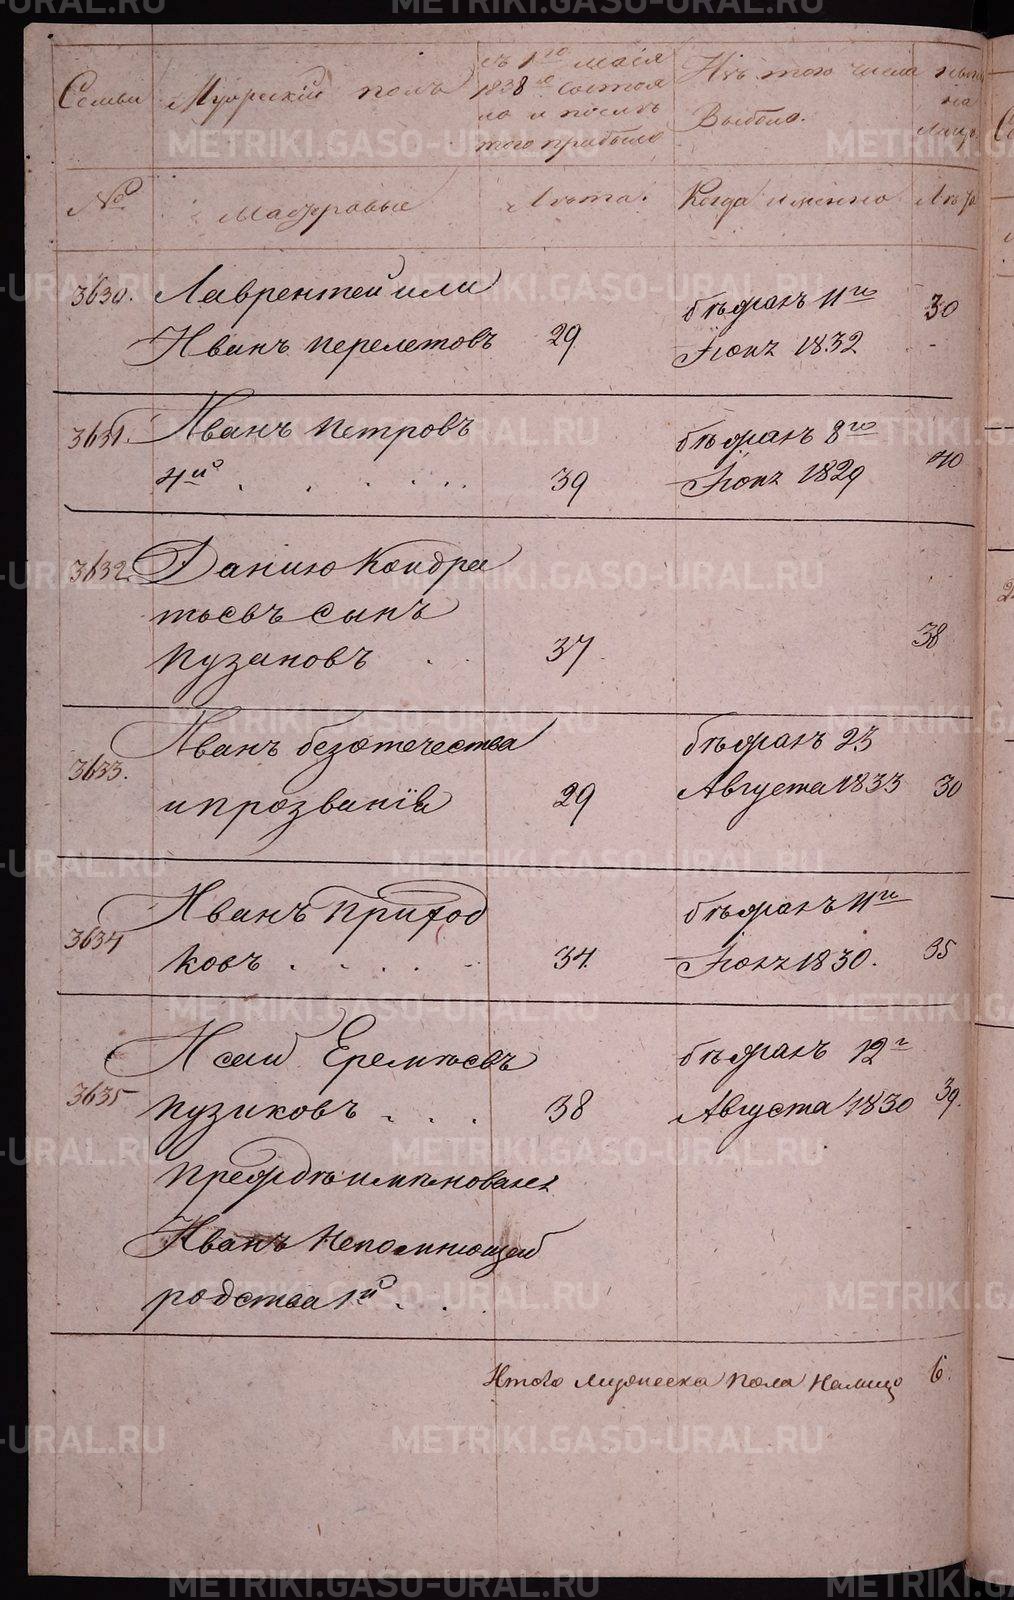 Семьи
Мужескій полъ
съ 1го Маія
1838го состоя
ло и послѣ
того прибыло
Изъ того числа
Выбыло.
ныне
на
лицо
№
Мастеровые
Лѣта.
Когда именно
Лѣта
3630. Лаврентей или
Иванъ Перелетовъ 29
бѣжалъ 11го
Іюля 1832
30
3631. Иванъ Петровъ
4й . . . . . . 39
бѣжалъ 8го
Іюля 1829
40
3632. Данило Кондра
тьевъ сынъ
Пузановъ . . 37
38
3633. Иванъ безотечества
и прозванія 29
бѣжалъ 23
Августа 1833
30
3634 Иванъ Приход
ковъ . . . . . 34.
бѣжалъ 11го
Іюля 1830.
35
3635 Исай Еремѣевъ
Пузиковъ . . . 38
бѣжалъ 12г
Августа 1830
39.
Преждѣ имѣновался
Иванъ Непомнющей
родства 1й . . .
Итого мужеска пола налицо 6.
METRIKI.GASO-URAL.RU